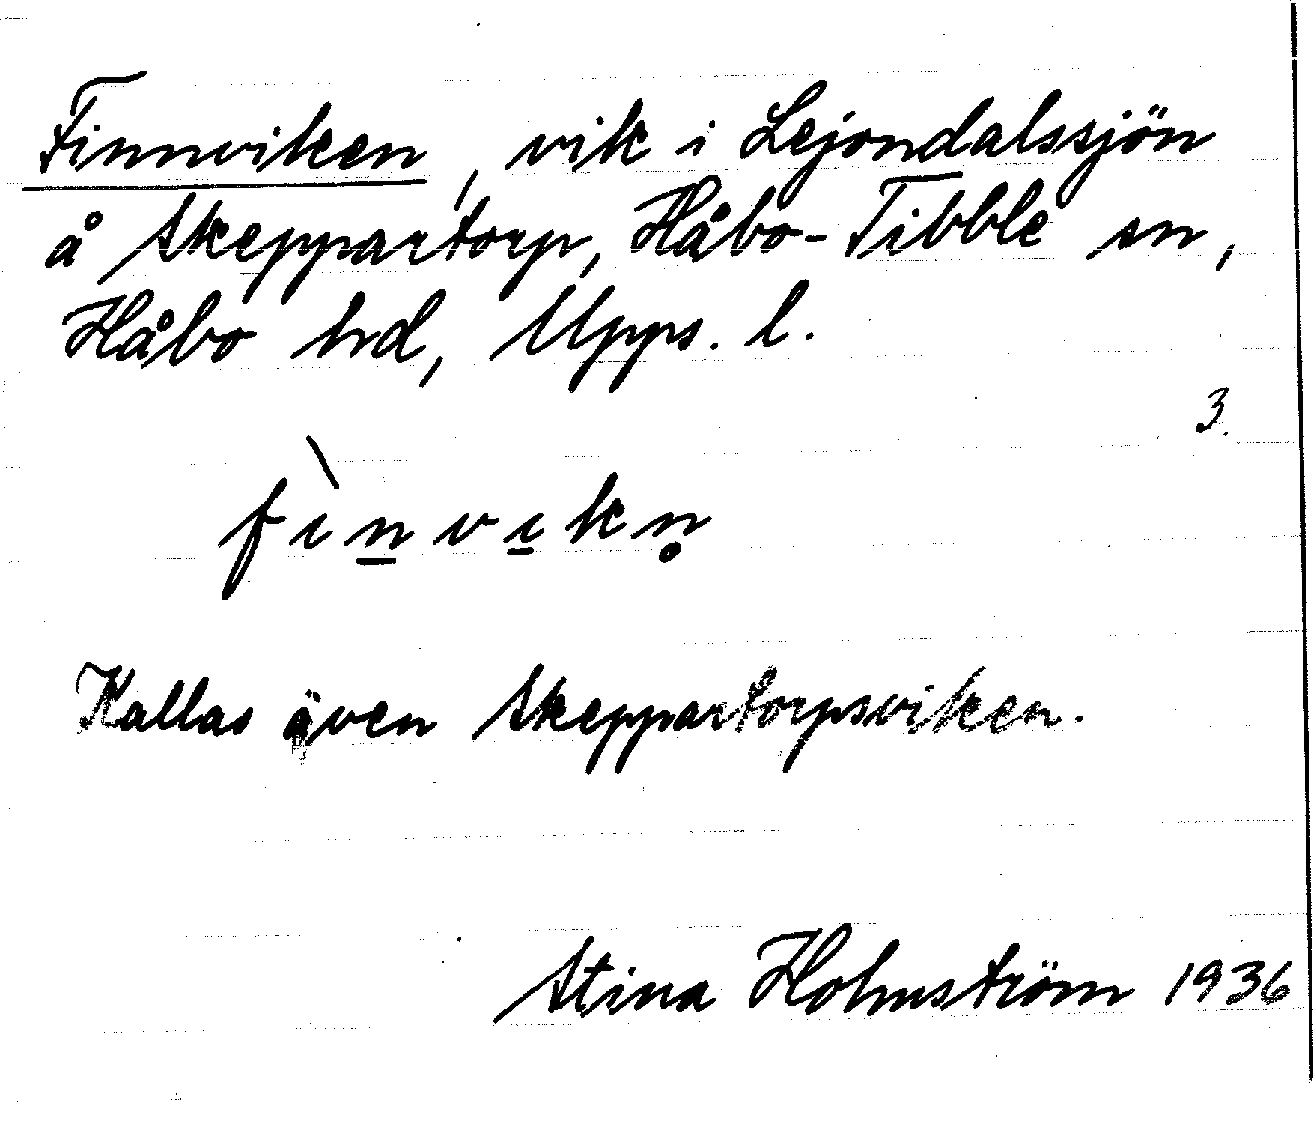 Finnviken, vik i Lejondalssjön
å Skeppartorp, Håbo-Tibble sn,
Håbo hd, Upps. l.
3.
fı̀n̲vı̲kn̥
Kallas även Skeppartorpsviken.
Stina Holmström 1936